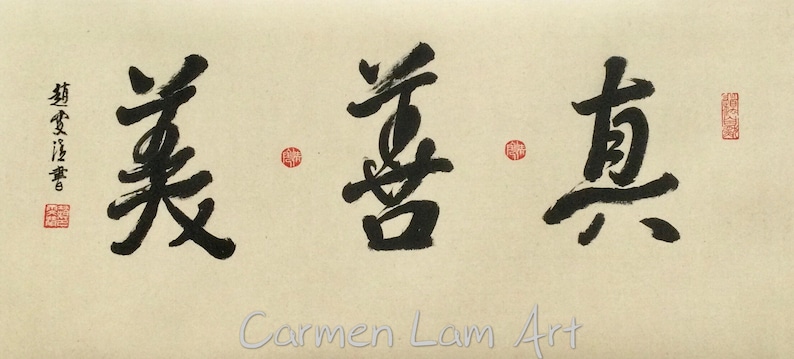 真善美
趙雯涓書
Carmen Lam Art